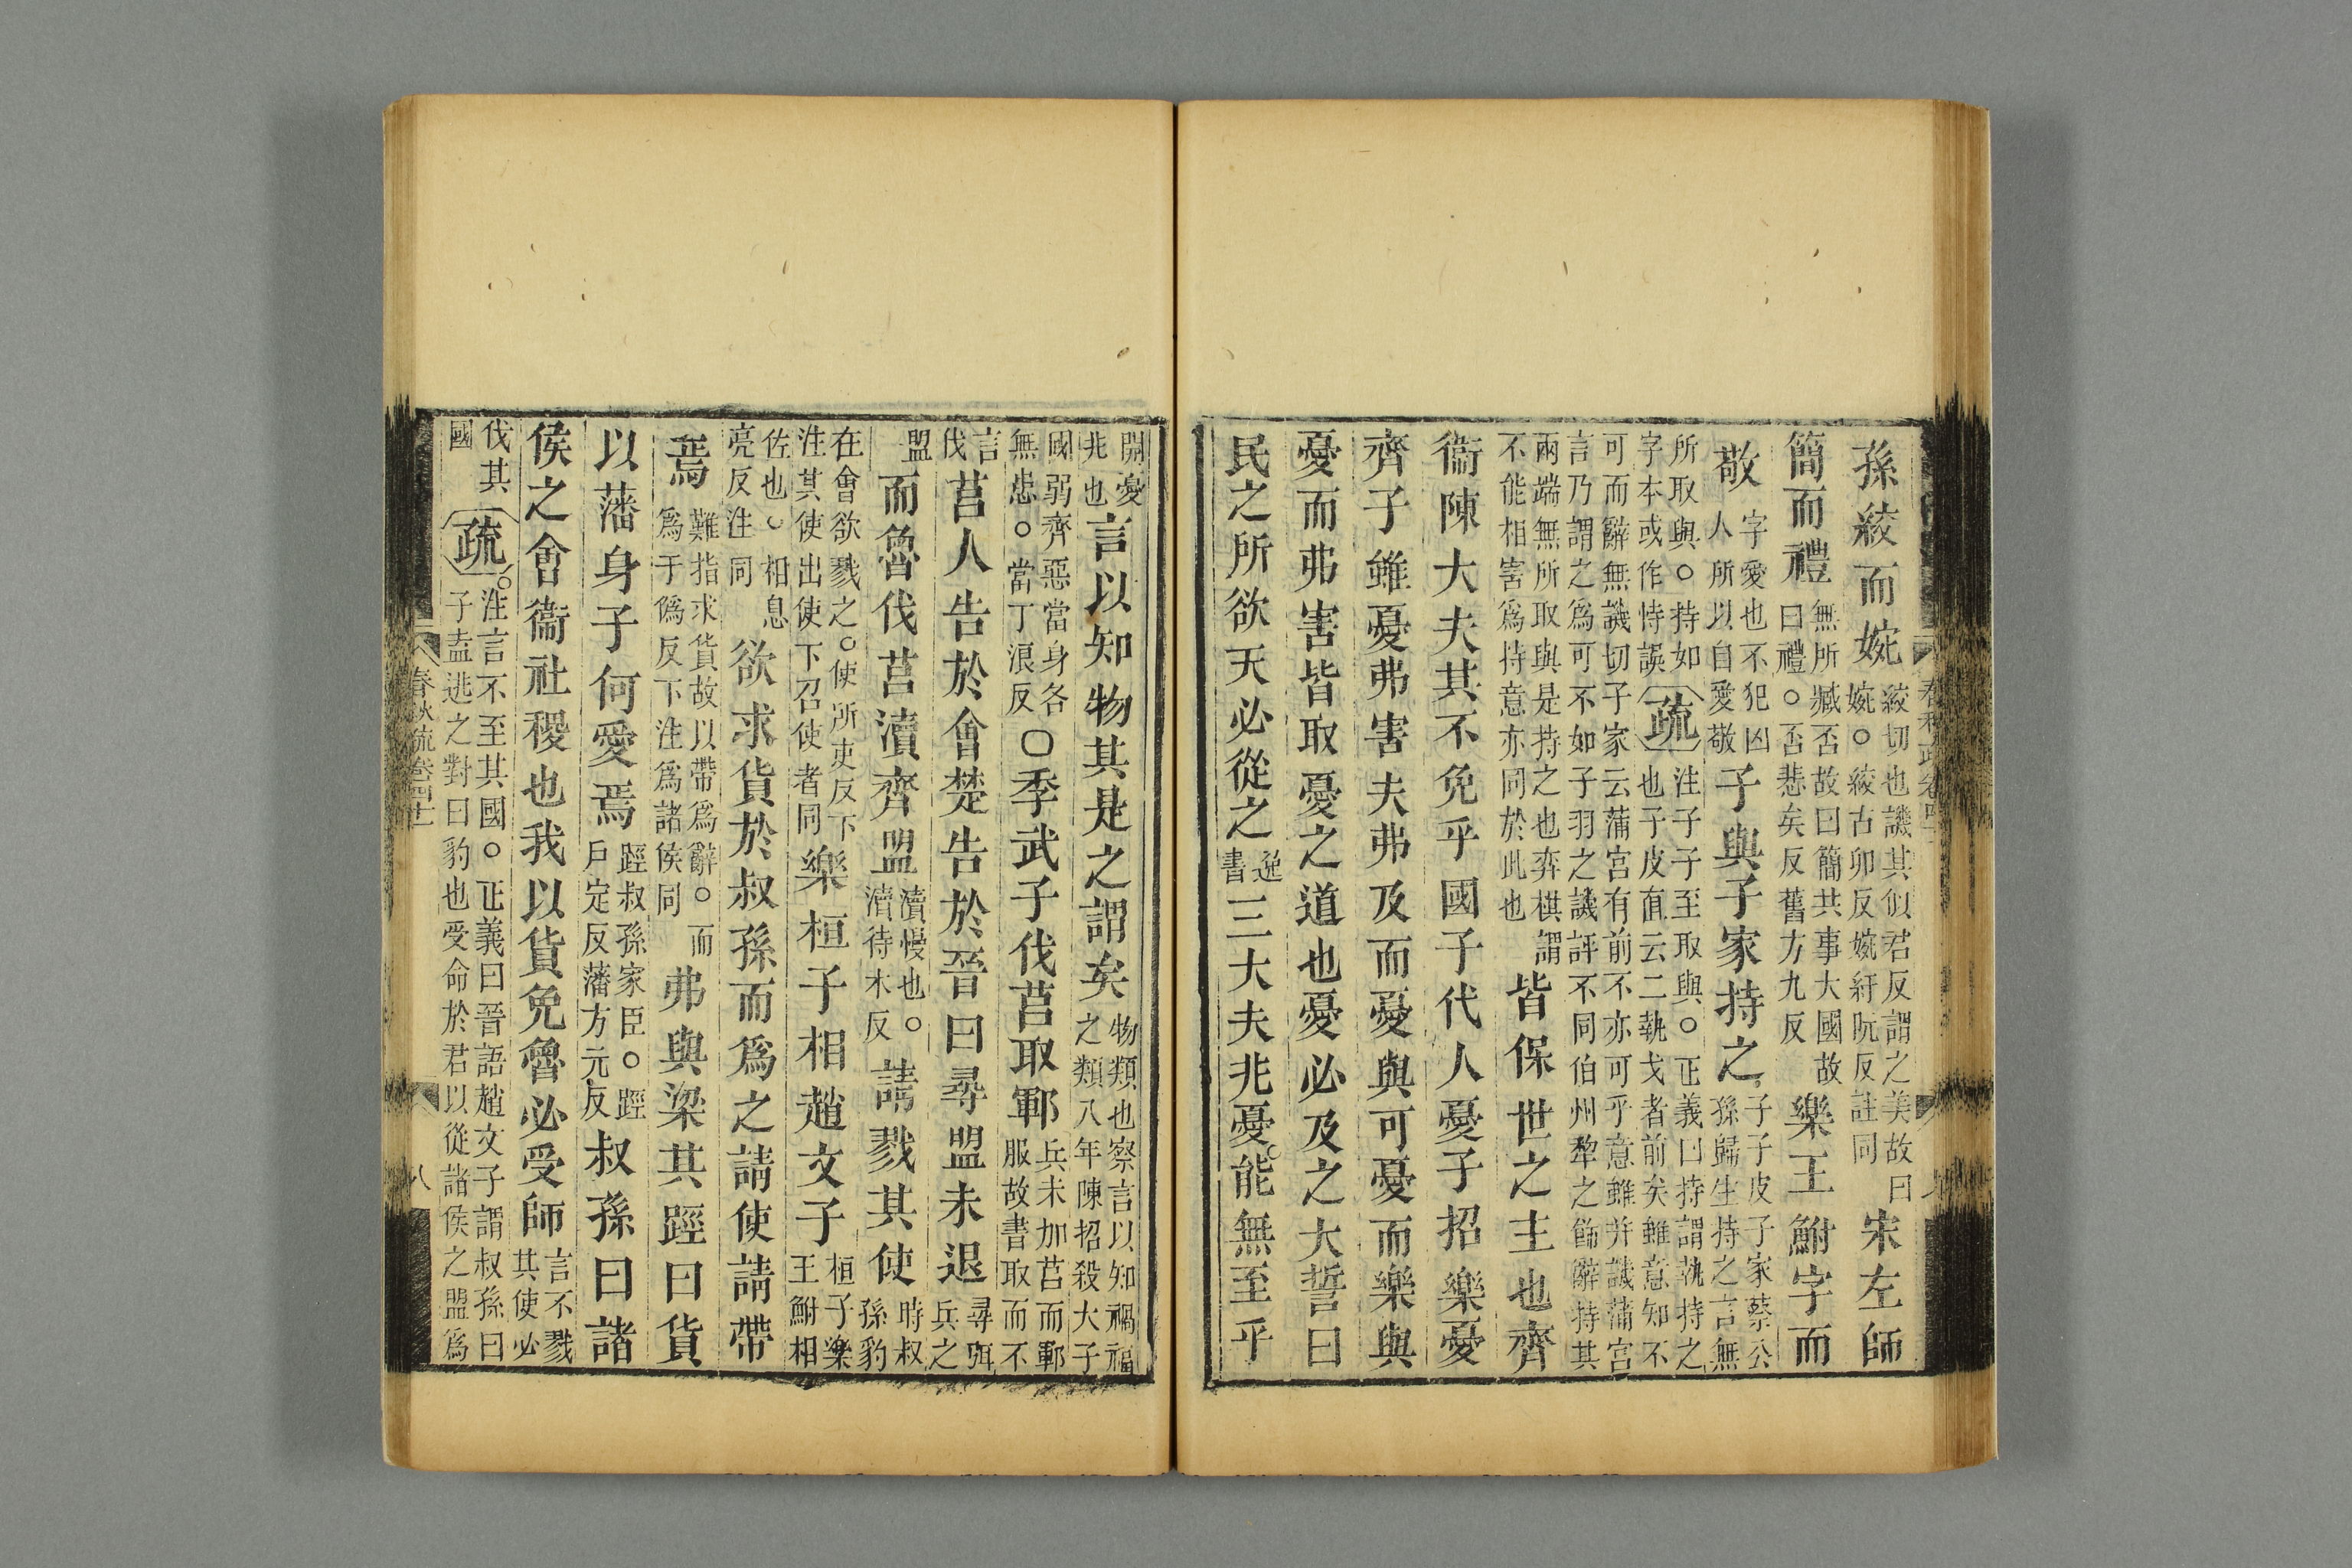 孫絞而婉絞切也譏其似君反謂之美故曰婉○絞古卯反婉紆阮反註同宋左師
簡而禮無所臧否故曰簡共事大國故曰禮○否悲矣反舊方九反樂王鮒字而
敬字愛也不犯凶人所以自愛敬子與子家持之子子皮子家蔡公孫歸生持之言無
所取與○持如字本或作恃誤疏注子子至取與○正義曰持謂執持之也子皮直云二執戈者前矣雖意知不
可而辭無譏切子家云蒲宮有前不亦可乎意雖并譏蒲宮言乃謂之爲可不如子羽之譏評不同伯州犂之飾辭持其
兩端無所取與是持之也弈棋謂不能相害爲持意亦同於此也皆保世之主也齊
衞陳大夫其不免乎國子代人憂子招樂憂
齊子雖憂弗害夫弗及而憂與可憂而樂與
憂而弗害皆取憂之道也憂必及之大誓曰
民之所欲天必從之逸書三大夫兆憂○能無至乎
開憂兆也言以知物其是之謂矣物類也察言以知禍福之類八年陳招殺大子
國弱齊惡當身各無患○當丁浪反○季武子伐莒取鄆兵未加莒而鄆服故書取而不
言伐莒人告於會楚告於晉曰尋盟未退尋弭兵之
盟而魯伐莒瀆齊盟瀆慢也○瀆待木反請戮其使時叔孫豹
在會欲戮之○使所吏反下注其使出使下召使者同樂桓子相趙文子桓子樂王鮒相
佐也○相息亮反注同欲求貨於叔孫而爲之請使請帶
焉難指求貨故以帶爲辭○而爲于僞反下注爲諸侯同弗與梁其踁曰貨
以藩身子何愛焉踁叔孫家臣○踁戶定反藩方元反叔孫曰諸
侯之會衞社稷也我以貨免魯必受師言不戮其使必
伐其國疏○注言不至其國○正義曰晉語趙文子謂叔孫曰子盍逃之對曰豹也受命於君以從諸侯之盟爲
春秋疏卷四十一
八